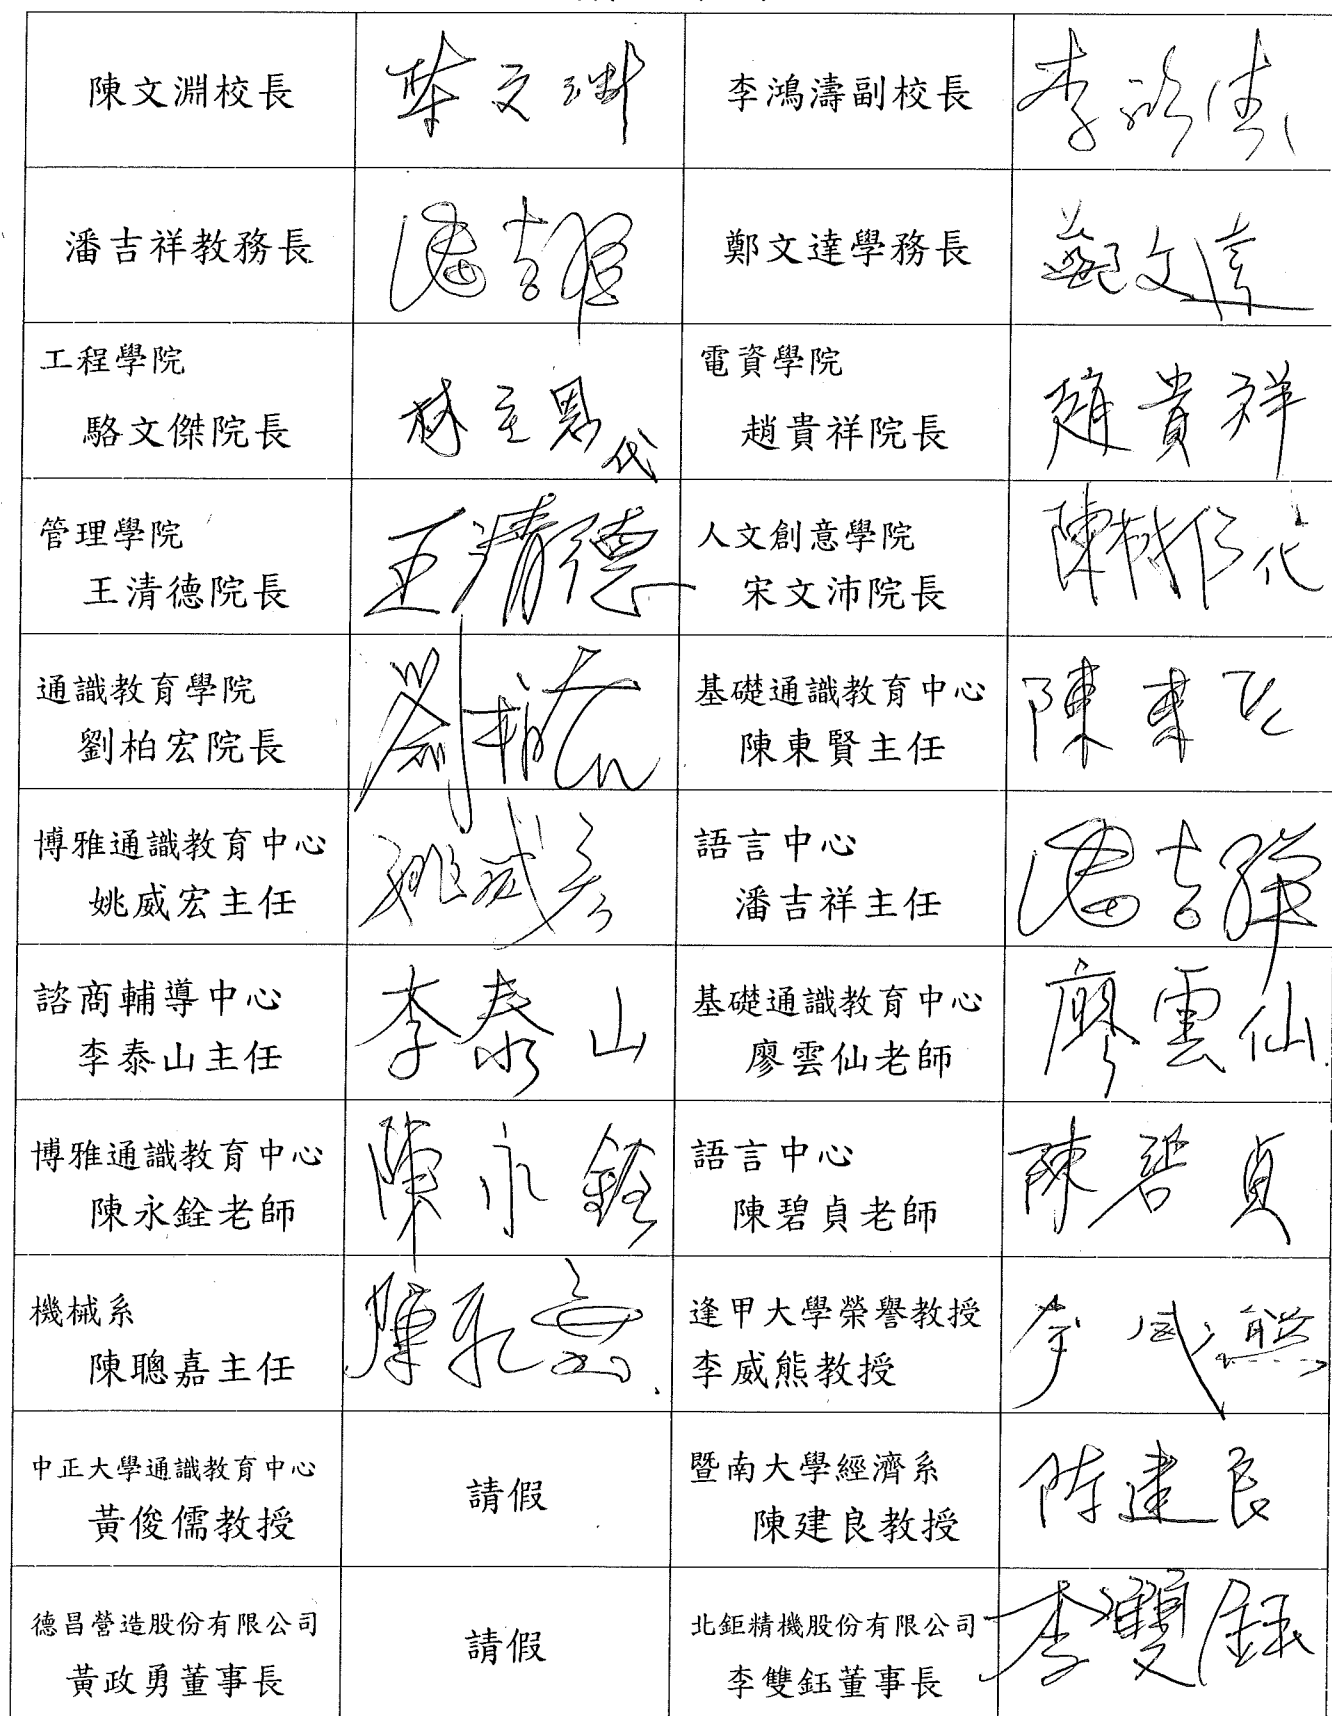 陳文淵校長
陳文淵
李鴻濤副校長
李鴻濤
潘吉祥教務長
潘吉祥
鄭文達學務長
鄭文達
工程學院
駱文傑院長
代
電資學院
趙貴祥院長
趙貴祥
管理學院
王清德院長
王清德
人文創意學院
宋文沛院長
陳樹仁代
通識教育學院
劉柏宏院長
劉柏宏
基礎通識教育中心
陳東賢主任
陳東賢
博雅通識教育中心
姚威宏主任
姚威宏
語言中心
潘吉祥主任
潘吉祥
諮商輔導中心
李泰山主任
李泰山
基礎通識教育中心
廖雲仙老師
廖雲仙
博雅通識教育中心
陳永銓老師
陳永銓
語言中心
陳碧貞老師
陳碧貞
機械系
陳聰嘉主任
陳聰嘉
逢甲大學榮譽教授
李威熊教授
李威熊
中正大學通識教育中心
黃俊儒教授
請假
暨南大學經濟系
陳建良教授
陈建良
德昌營造股份有限公司
黃政勇董事長
請假
北鉅精機股份有限公司
李雙鈺董事長
李雙鈺